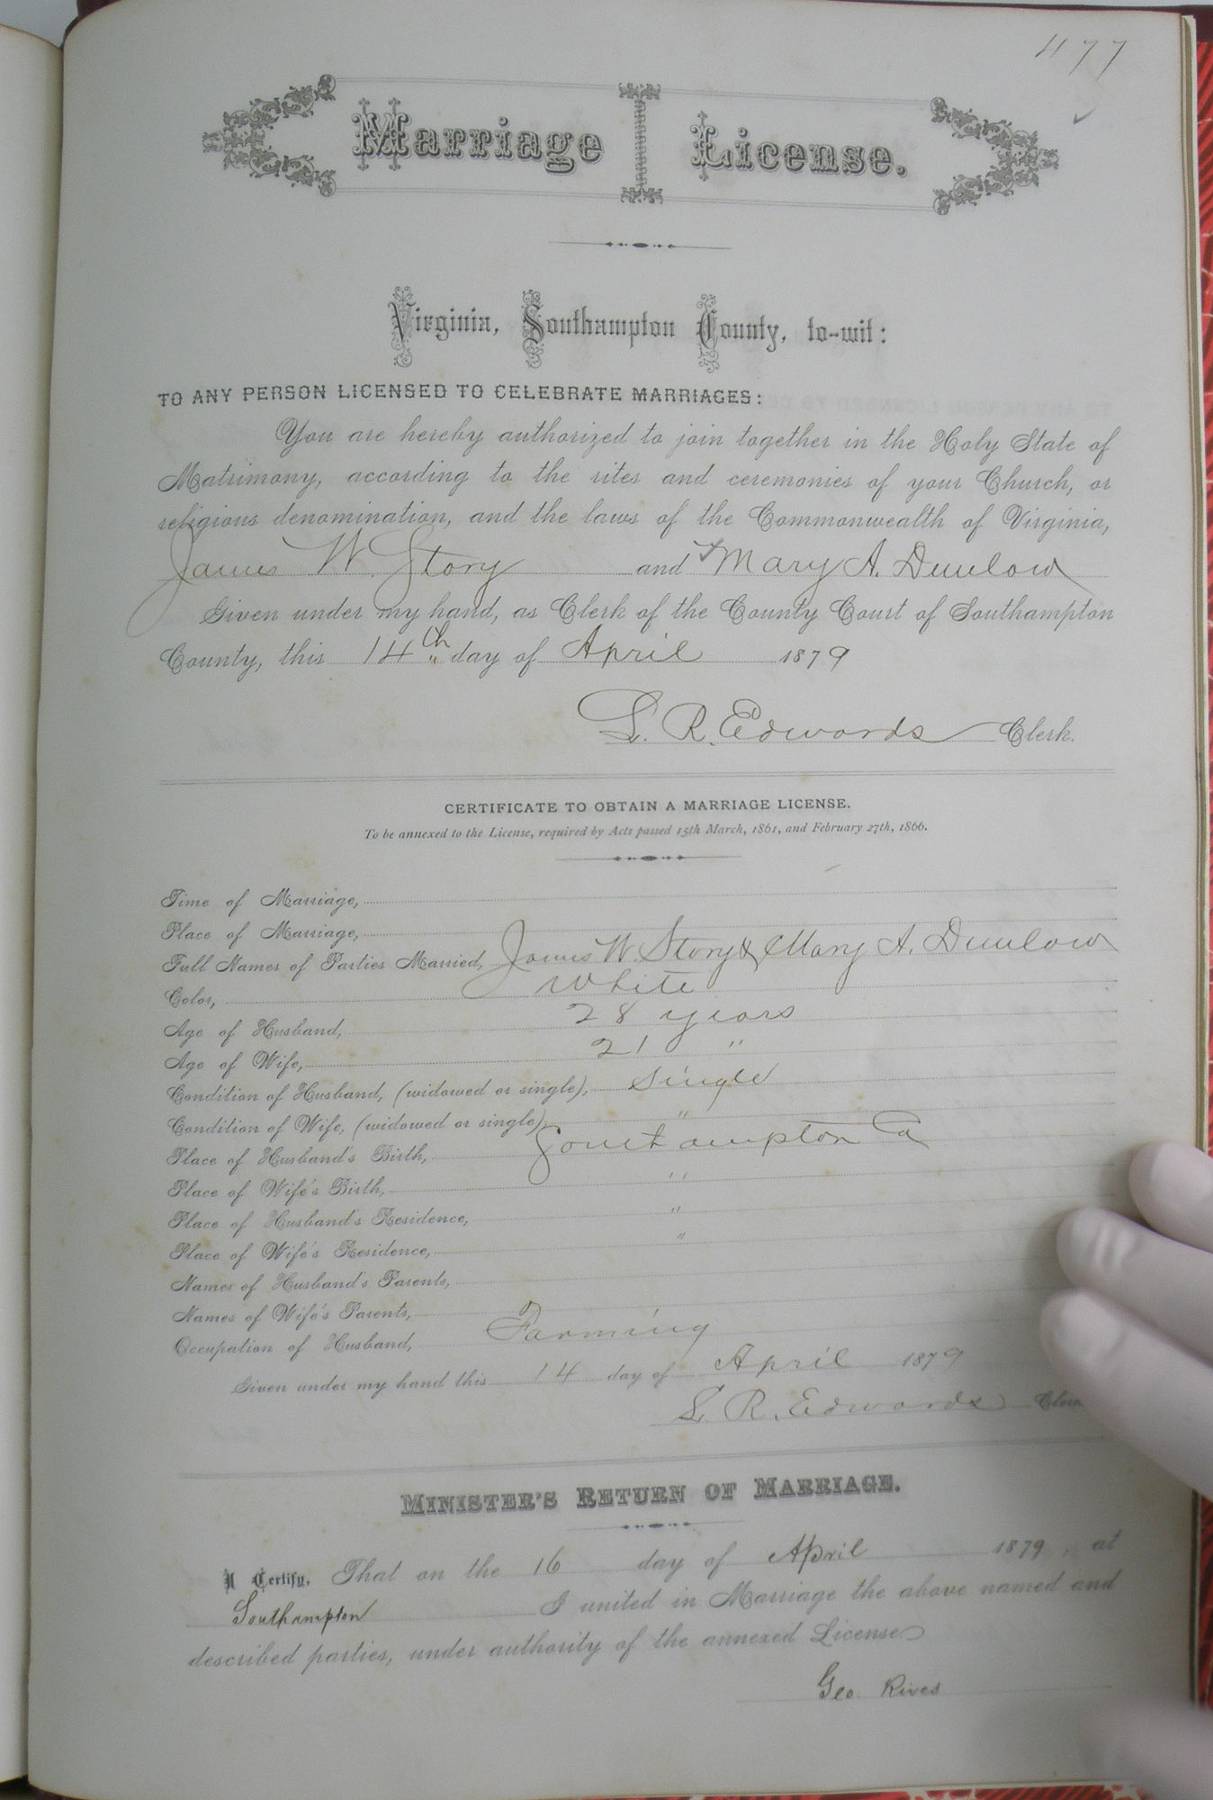 477
Marriage License.
Virginia, Southampton County, to-wit:
TO ANY PERSON LICENSED TO CELEBRATE MARRIAGES:
You are hereby authorized to join together in the Holy State of
Matrimony, according to the rites and ceremonies of your Church, or
religious denomination, and the laws of the Commonwealth of Virginia,
James W. Story and Mary A. Dunlow
Given under my hand, as Clerk of the County Court of Southampton
County, this 14th day of April 1879
L. R. Edwards Clerk.
CERTIFICATE TO OBTAIN A MARRIAGE LICENSE.
To be annexed to the License, required by Acts passed 15th March, 1861, and February 27th, 1866.
Time of Marriage,
Place of Marriage,
Full Names of Parties Married, James W. Story & Mary A. Dunlow
Color, White
Age of Husband, 28 years
Age of Wife, 21 "
Condition of Husband, (widowed or single), Single
Condition of Wife, (widowed or single), "
Place of Husband's Birth, Southampton Co
Place of Wife's Birth, "
Place of Husband's Residence, "
Place of Wife's Residence, "
Names of Husband's Parents,
Names of Wife's Parents,
Occupation of Husband, Farming
Given under my hand this 14 day of April 1879
L. R. Edwards
MINISTER'S RETURN OF MARRIAGE.
I Certify, That on the 16 day of April 1879, at
Southampton I united in Marriage the above named and
described parties, under authority of the annexed License
Geo. Rives